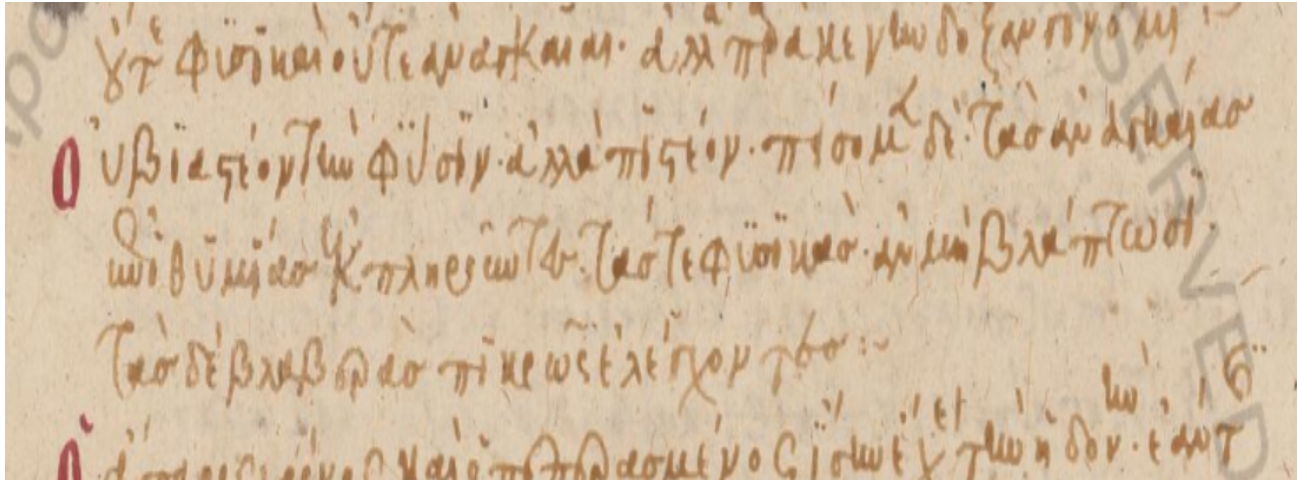 οὔτε φυσικαὶ οὔτε ἀναγκαῖαι· ἀλλὰ παρὰ κενὴν δόξαν γινόμεναι
Οὐ βιαστέον τὴν φύσιν· ἀλλὰ πιστέον· πείσομεν δὲ τὰς ἀναγκαίας
ἐπιθυμίας ἐκπληροῦντες· τάς τε φυσικὰς· ἂν μὴ βλάπτωσι·
τὰς δὲ βλαβερὰς πικρῶς ἐλέγχοντες :~
Ὁ καὶ ὁ πεπερασμένος ἴσην ἔχει τὴν ἡδονήν· ἐάν τ